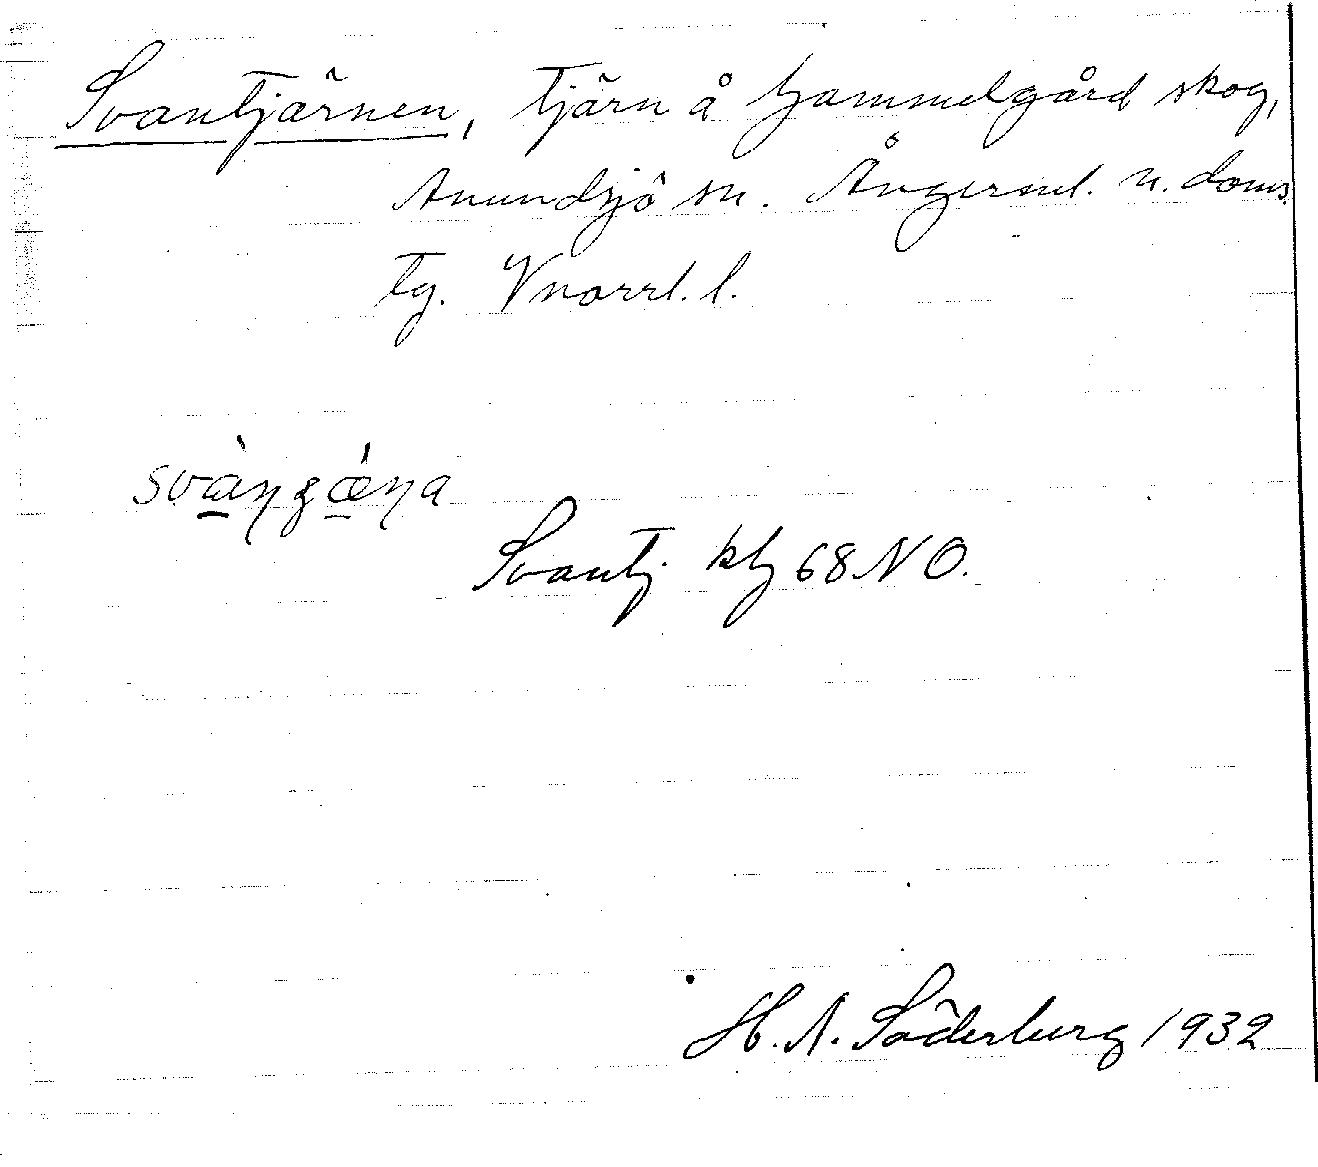 Svantjärnen, tjärn å Gammelgård skog,
Anundsjö sn. Ångerml. n. doms.
tg. Vnorrl. l.
svàŋgæ̀ŋa
Svantj. ktg 68 NO.
H. A. Söderberg 1932